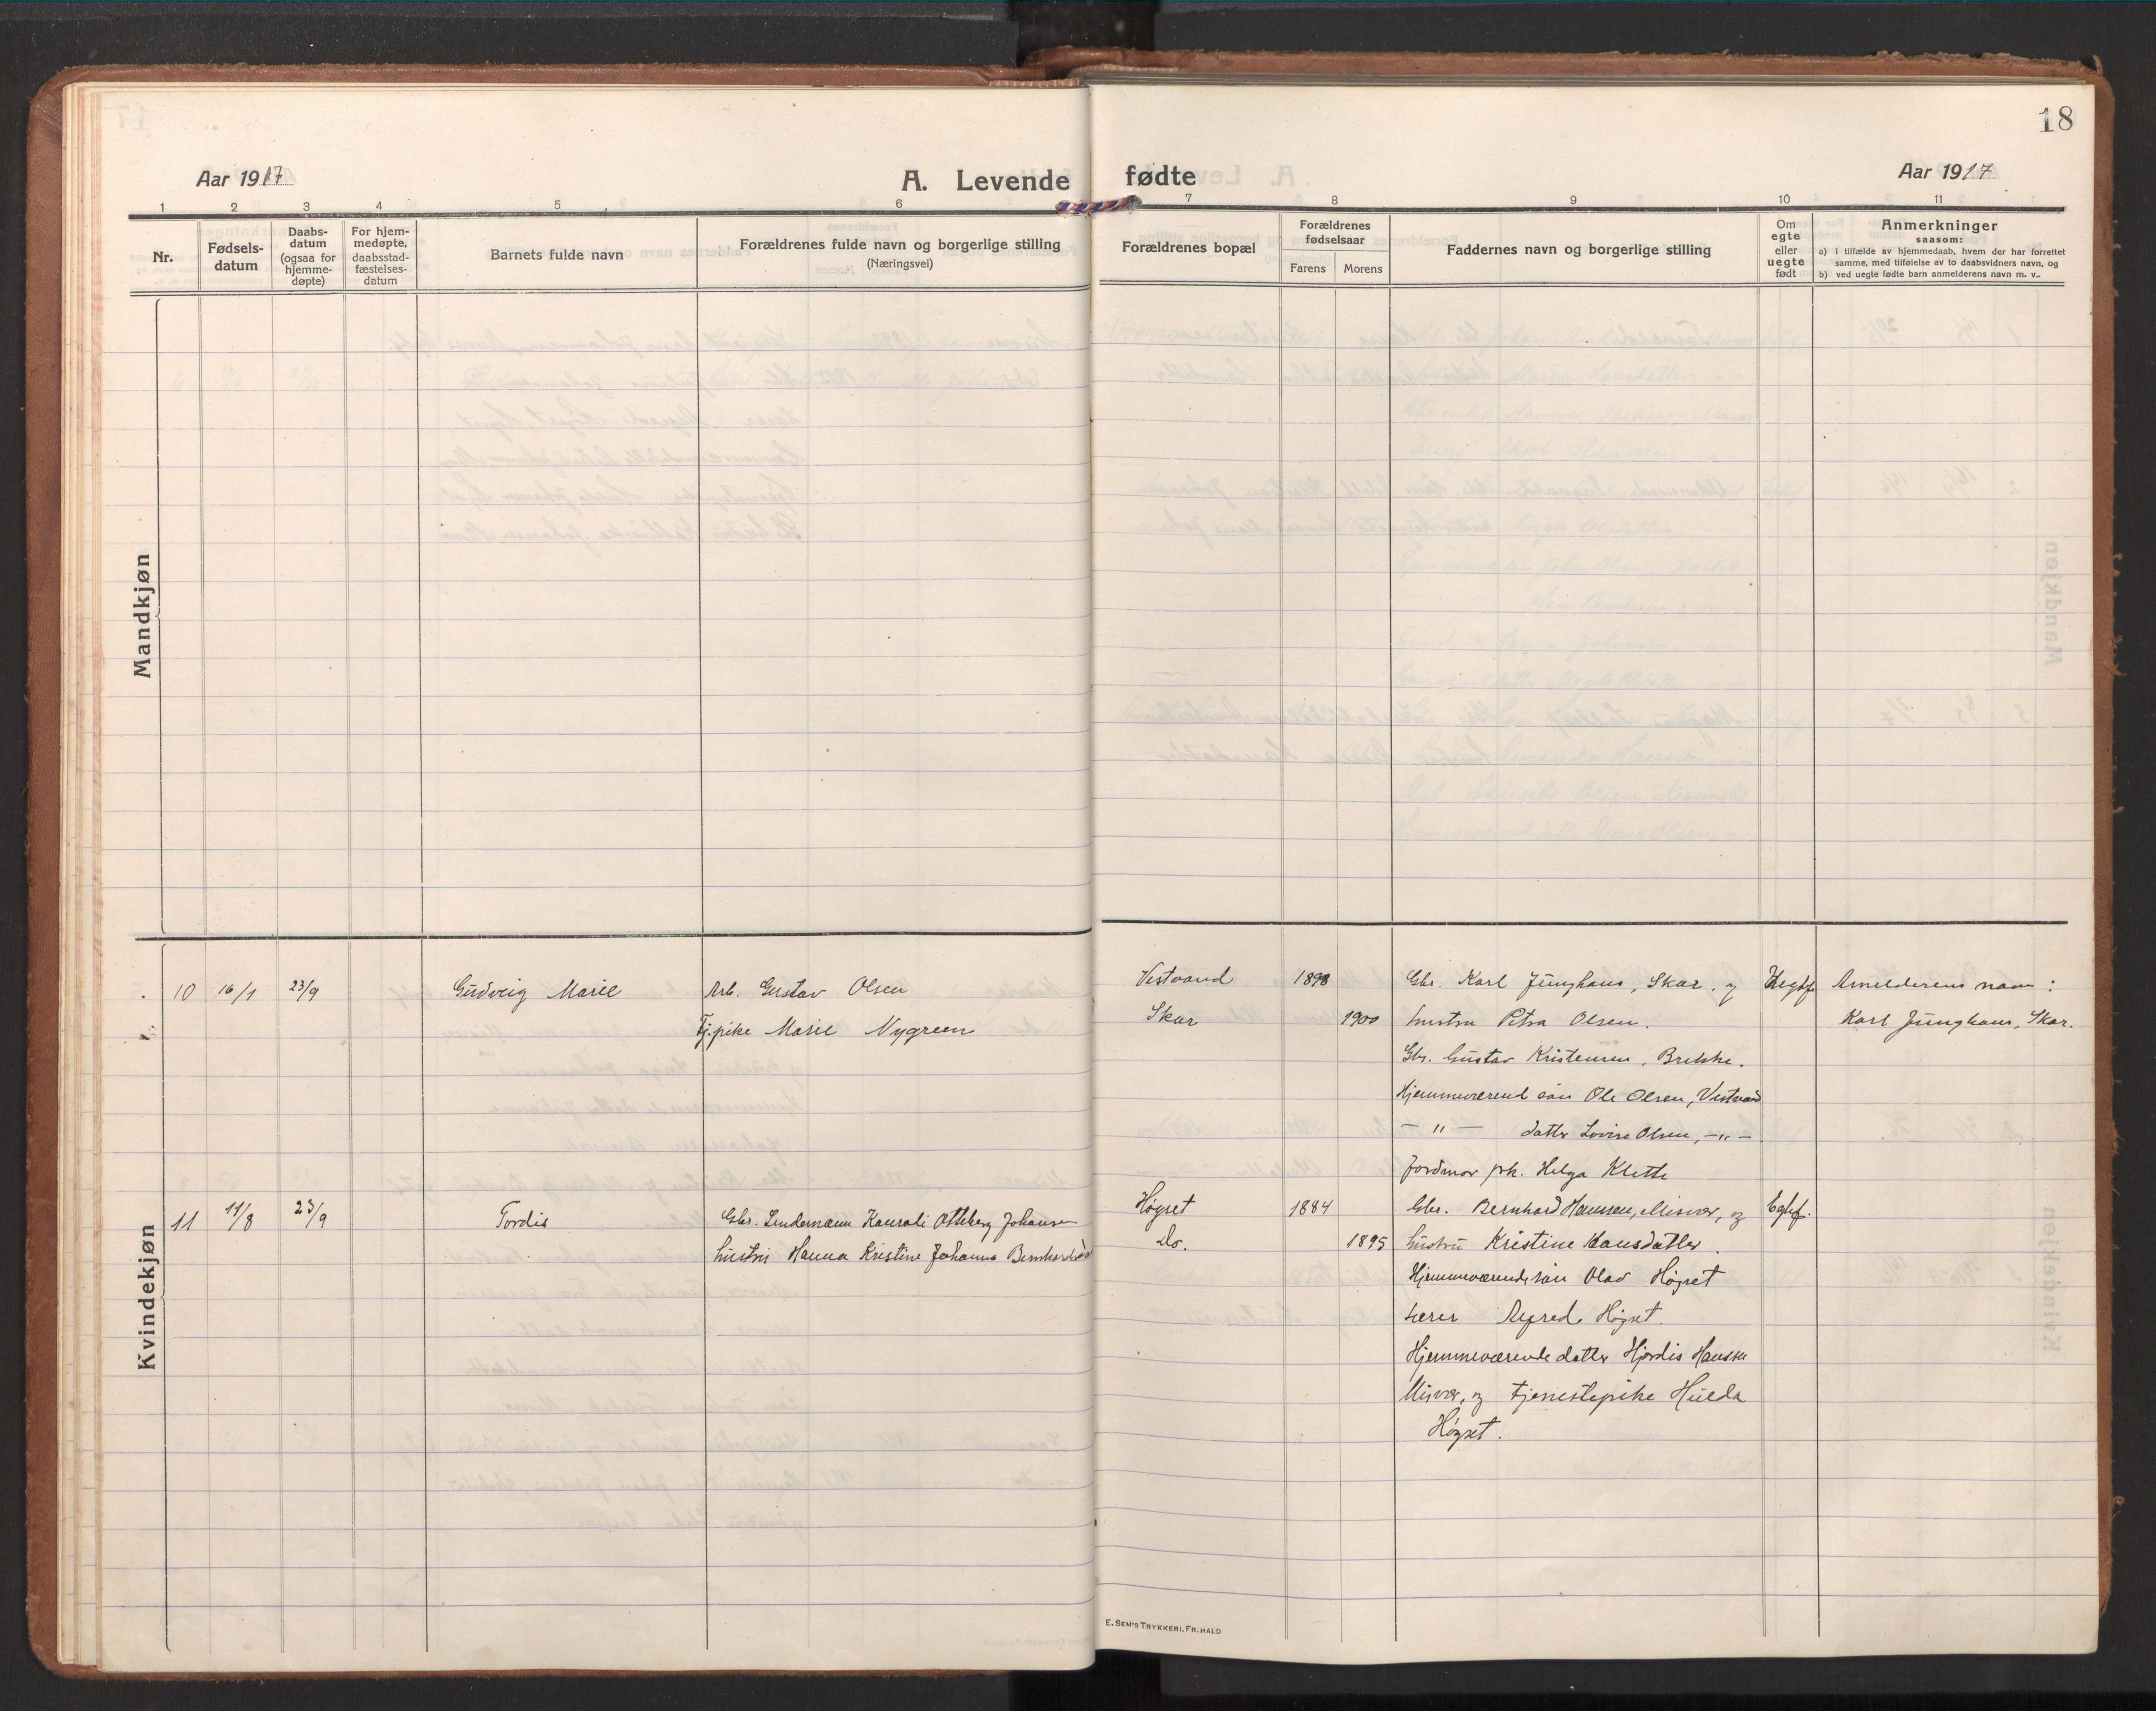 18
Aar 1917
A. Levende fødte
Aar 1917
1 2 3 4 5 6 7 8 9 10 11
Nr.
Fødsels-
datum
Daabs-
datum
(ogsaa for
hjemme-
døpte)
For hjem-
medøpte,
daabsstad-
fæstelses-
datum
Barnets fulde navn
Forældrenes fulde navn og borgerlige stilling
(Næringsvei)
Forældrenes bopæl
Forældrenes
fødselsaar
Farens Morens
Faddernes navn og borgerlige stilling
Om
egte
eller
uegte
født
Anmerkninger
saasom:
a) i tilfælde av hjemmedaab, hvem der har forrettet
samme, med tilføielse av to daabsvidners navn, og
b) ved uegte fødte barn anmelderens navn m. v..
Mandkjøn
Kvindekjøn
10 16/1 23/9 Gudveig Marie
Arb. Gustav Olsen
Tj.pike Marie Nygreen
Vestvand 1898
Skar 1900
Gbr. Karl Junghans, Skar. og
hustru Petra Olsen.
Gbr. Gustav Kristensen, Brekke.
Hjemmeværend søn Ole Olsen, Vestvand
— " — datter Lovise Olsen, — " —
Jordmor frk. Helga Klette
Uegtef.
Anmelderens navn:
Karl Junghans, Skar.
11 11/8 23/9 Tordis
Gbr. Lindemann Konradi Ottberg Johansen
hustru Hanna Kristine Johanna Bernhardsd
Høgset 1884
Do. 1895
Gbr. Bernhard Hansen, Misvær, og
hustru Kristine Hansdatter.
Hjemmeværende søn Olav Høgset
Lærer Alfred Høgset.
Hjemmeværende datter Hjørdis Hansen
Misvær, og tjenestepike Hulda
Høgset.
Egtef.
E. SEM'S TRYKKERI, FR.HALD